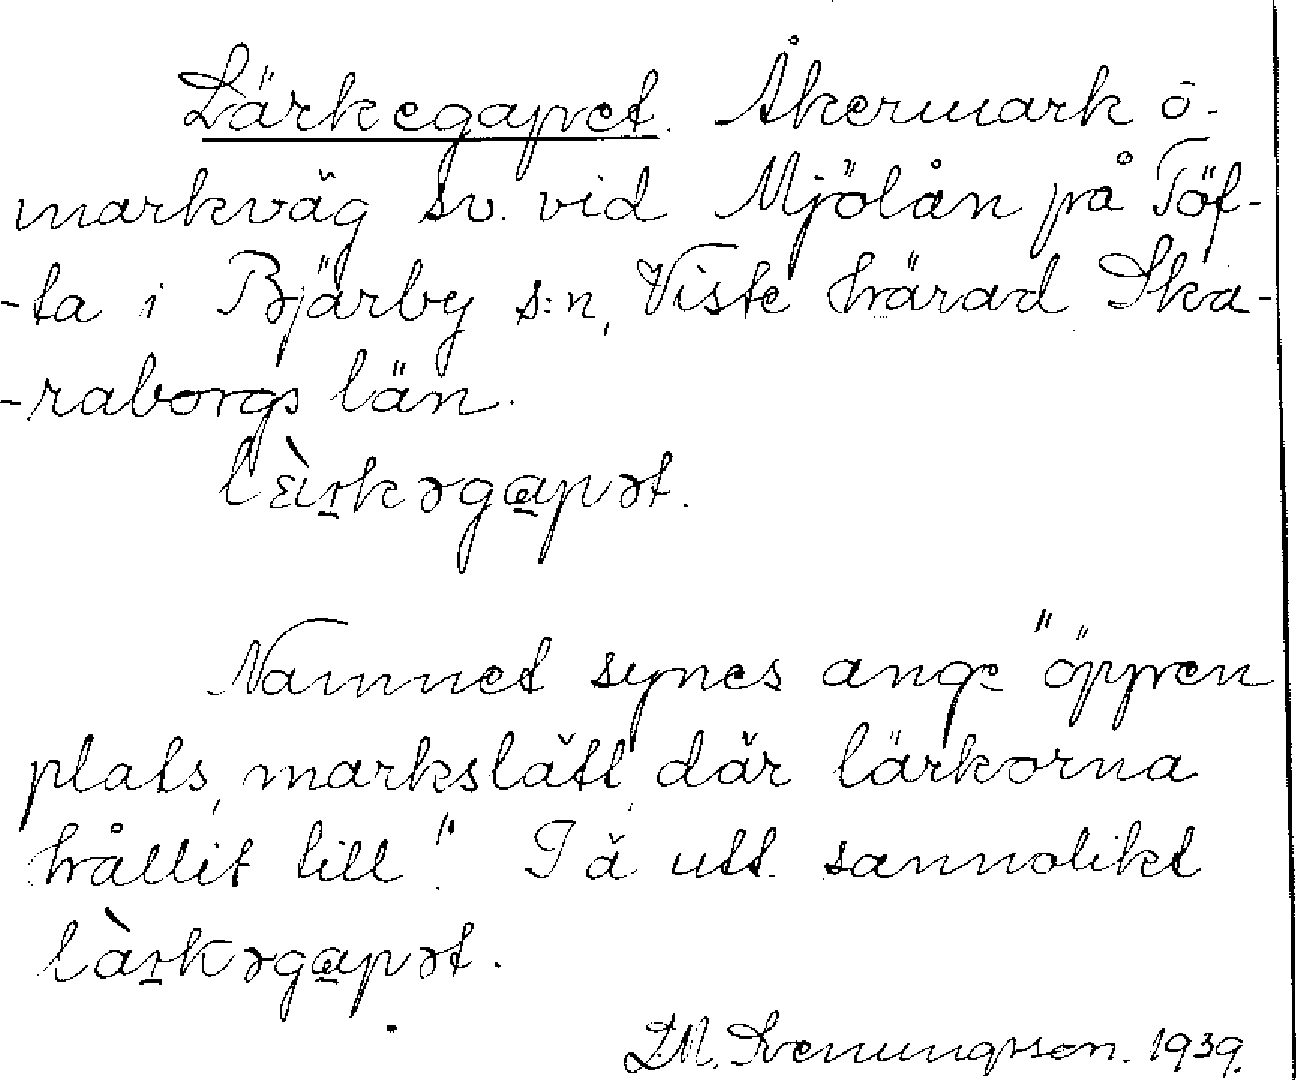 Lärkegapet. Åkermark ö.
markväg sv. vid Mjölån på Töf-
-ta i Bjärby s:n, Viste härad Ska-
-raborgs län.
lɛ̀ṟkəga̱pət.
Namnet synes ange "öppen
plats, markslätt, där lärkorna
hållit till". I ä. utt. sannolikt
làṟkəga̱pət.
Svenungsson. 1939.